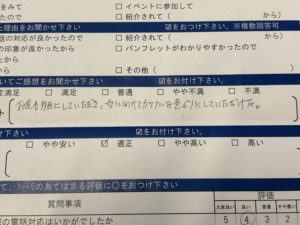 をみて □ イベントに参加して
□ 紹介されて( から)
た理由をお聞かせ下さい ☑をおつけ下さい。※複数回答可
の対応が良かったから □ 紹介されて( から)
の印象が良かったから □ パンフレットがわかりやすかったので
たから
から □ その他(
いてご感想をお聞かせ下さい ☑をお付け下さい。
変満足 □ 満足 □ 普通 □ やや不満 □ 不満
にしていただき、
にしていただけた。
かせ下さい ☑をお付け下さい。
□ やや安い ☑ 適正 □ やや高い □ 高い
て、1~5のあてはまる評価に○をおつけ下さい
質問事項 評価
大変良い 良い 普通 やや悪い
の電話対応はいかがでしたか 5 4 3 2